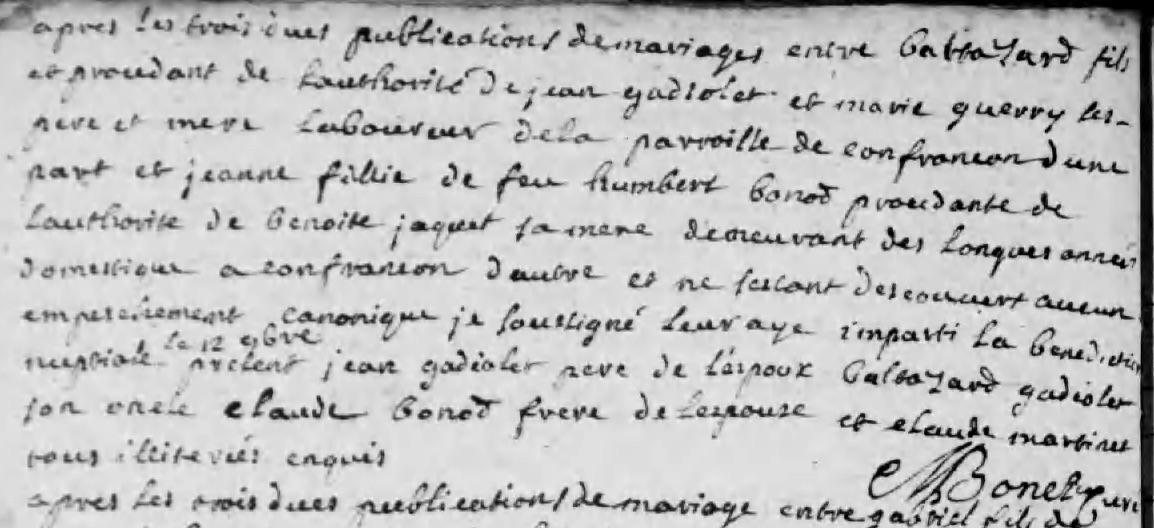 apres les trois dues publications de mariages entre baltazard fils
et procedant de lauthorité de jean gadiolet et marie guerry ses
pere et mere laboureur de la parroisse de confrancon dune
part et jeanne fillie de feu humbert bonod procedante de
lauthorite de benoite jaquet sa mere demeurant des longues années
domestique a confrancon dautre et ne sestant descouvert aucun
empeschement canonique je soussigné leur aye imparti la benediction
nuptiale le 12 9bre present jean gadiolet pere de lespoux baltazard gadiolet
son oncle claude bonod frere de lespouse et claude martinet
tous illiterés enquis
Bonet curé
apres les trois dues publications de mariage entre gabriel fils de